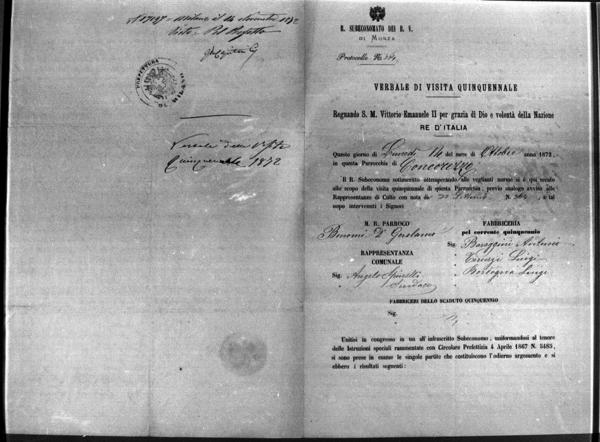 Milano il 14 Novembre 1872
Visto - Pel Prefetto
PREFETTURA DI MILANO
Verbale della Visita
Quinquennale 1872
R. SUBECONOMATO DEI B. V.
DI MONZA
Protocollo N. 384
VERBALE DI VISITA QUINQUENNALE
Regnando S. M. Vittorio Emanuele II per grazia di Dio e volontà della Nazione
RE D'ITALIA
Questo giorno di Lunedì 14 del mese di Ottobre anno 1872,
in questa Parrocchia di Concorezzo
Il R. Subeconomo sottoscritto ottemperando alle veglianti norme si è qui recato
allo scopo della visita quinquennale di questa Parrocchia, previo analogo avviso alle
Rappresentanze di Culto con nota di N. 384, e tal
uopo intervenuti i Signori
M. R. PARROCO
Girolamo
RAPPRESENTANZA
COMUNALE
Sig. Angelo
Sindaco
FABBRICERIA
pel corrente quinquennio
Sig.
Luigi
Luigi
FABBRICERI DELLO SCADUTO QUINQUENNIO
Sig.
Unitisi in congresso in un all'infrascritto Subeconomo, uniformandosi al tenore
delle Istruzioni speciali rammentate con Circolare Prefettizia 4 Aprile 1867 N. 8485,
si sono prese in esame le singole partite che costituiscono l'odierno argomento e si
ebbero i risultati seguenti: